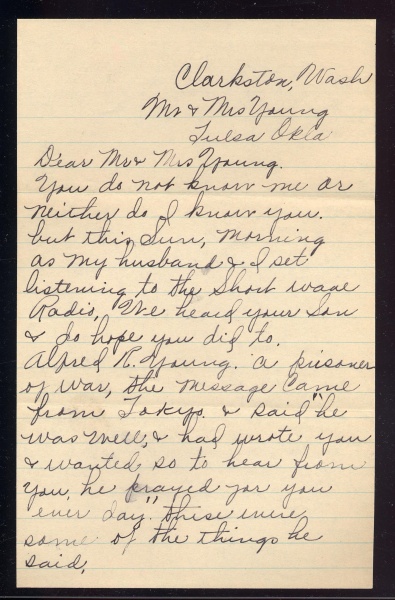 Clarkston, Wash
Mr & Mrs Young
Tulsa Okla
Dear Mr & Mrs Young.
You do not know me or
neither do I know you.
but this Sun, morning
as my husband & I set
listening to the Short wave
Radio, We heard your Son
& do hope you did to.
Alfred R. Young. a prisoner
of war, the message came
from Tokyo. & said "he
was well, & had wrote you
& wanted so to hear from
you, he prayed for you
ever day". these were
some of the things he
said.